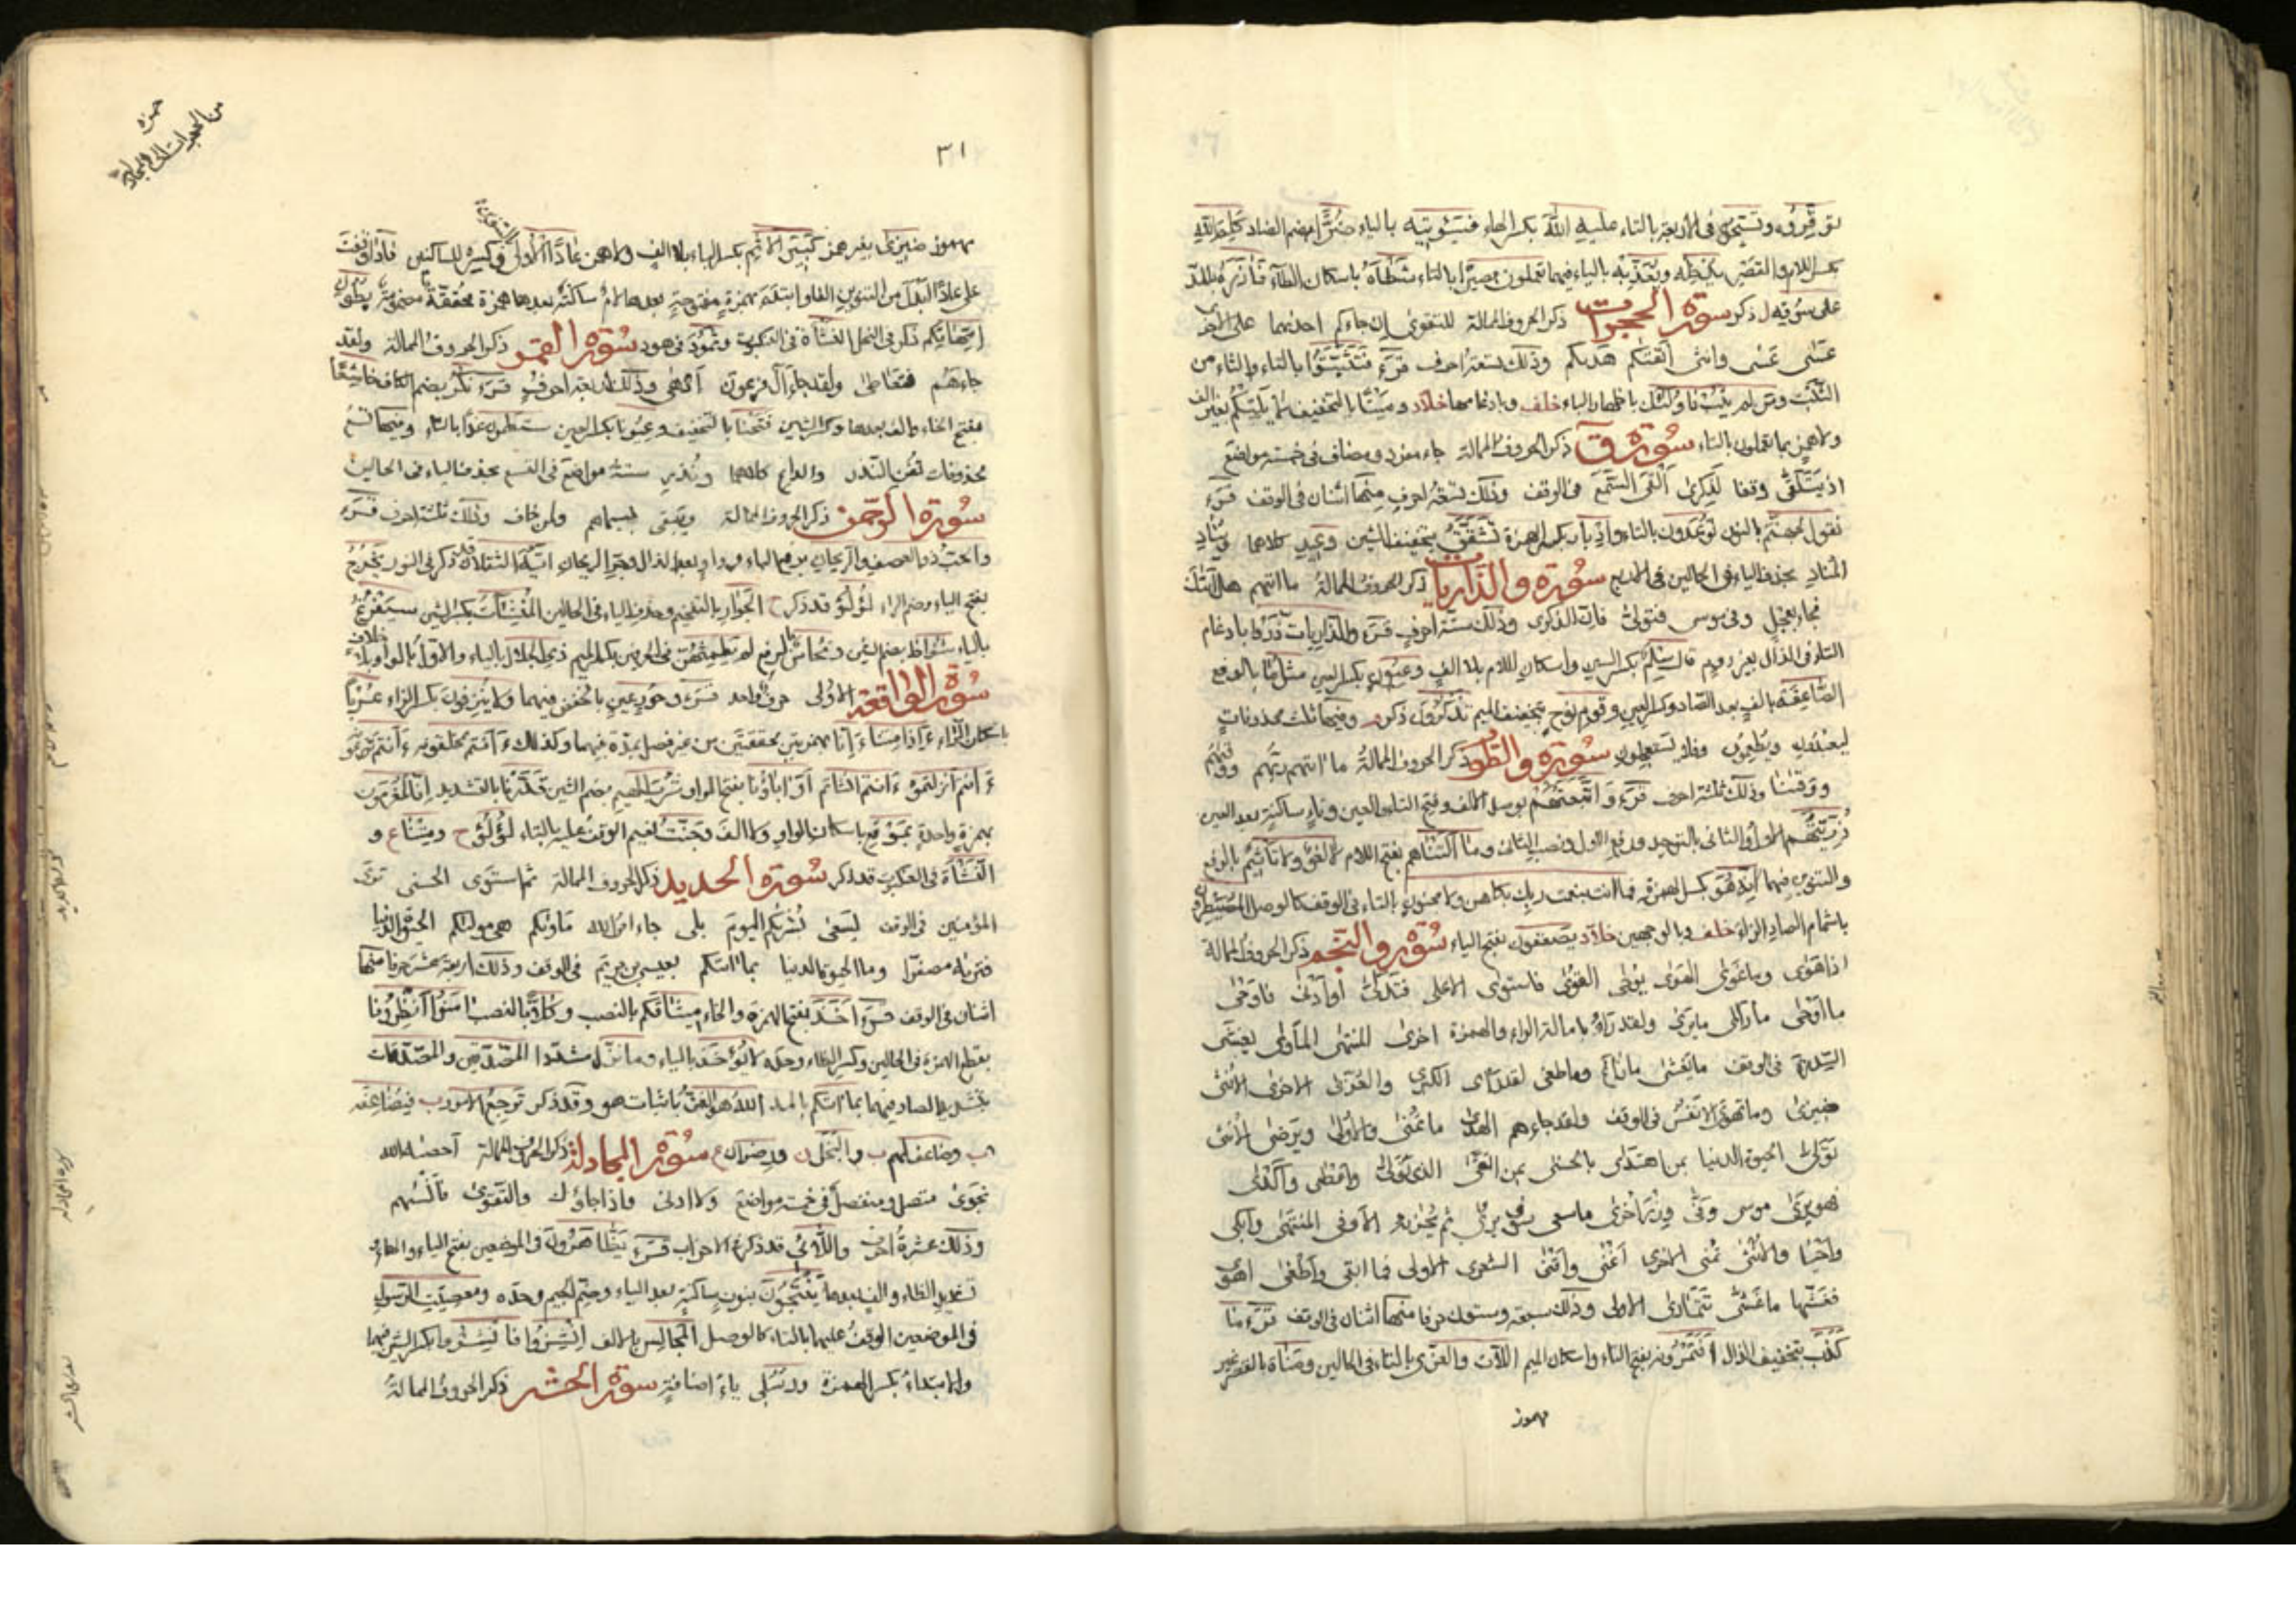 توقروه وتسبحوه في الاربعة بالتاء عليه الله بكسر الهاء فسيؤتيه بالياء ضُرًّا بضم الضاد كلم الله
بكسر اللام والقصر يدخله ويعذبه بالياء فيهما تعملون بصيرا بالتاء شطأه باسكان الطاء فآزره بالمد
على سوقه ذكر سورة الحجرات ذكر الحروف الممالة للتقوى ان جاءكم احديهما على الاخرى
عسى عسى وانثى اتقيكم هديكم وذلك تسعة احرف قرء فتثبتوا بالتاء والثاء من
التثبت ومن لم يتب فاولئك باظهار الباء خلف وبادغامها خلاد وميتا بالتخفيف لا يلتكم بغير الف
ولا همز بما تعملون بالتاء سورة ق ذكر الحروف الممالة جاء مفرد ومضاف في خمسة مواضع
اذ يتلقى وقفا لذكرى القى السمع في الوقف وذلك تسعة احرف منها اثنان في الوقف قرء
نقول لجهنم بالنون توعدون بالتاء وادبار بكسر الهمزة تشقق بتخفيف الشين وعيد كلاهما يناد
المناد بحذف الياء في الحالين في الاربع سورة والذاريات ذكر الحروف الممالة ما اتيهم هل اتيك
فجاء بعجل وفي موسى فتولى فان الذكرى وذلك ستة احرف قرء والذاريات ذروا بادغام
التاء في الذال بغير روم قال سلم بكسر السين واسكان اللام بلا الف وعيون بكسر العين مثل ما بالرفع
الصاعقة بالف بعد الصاد وكسر العين وقوم نوح بتخفيف الميم تذكرون ذكر وفيها ثلث محذوفات
ليعبدون ويطعمون وفلا تستعجلون سورة والطور ذكر الحروف الممالة ما اتيهم ربهم ووقيهم
ووقينا وذلك ثلثة احرف قرء واتبعتهم بوصل الالف وفتح التاء والعين وتاء ساكنة بعد العين
ذريتهم الاول والثاني بالتوحيد ورفع الاول ونصب الثاني وما التناهم بفتح اللام لا لغو ولا تأثيم بالرفع
والتنوين فيهما انه هو بكسر الهمزة فما انت بنعمت ربك بكاهن ولا مجنون بالتاء في الوقف كالوصل المصيطرون
باشمام الصاد الزاء خلف وبالوجهين خلاد يصعقون بفتح الياء سورة والنجم ذكر الحروف الممالة
اذا هوى وما غوى الهوى يوحى القوى فاستوى الاعلى فتدلى او ادنى فاوحى
ما اوحى ما راى ما يرى ولقد راه بامالة الراء والهمزة اخرى المنتهى المأوى يغشى
السدرة في الوقف ما يغشى ما زاغ وما طغى لقد راى الكبرى والعزى الاخرى الانثى
ضيزى وما تهوى الانفس في الوقف ولقد جاءهم الهدى ما تمنى والاولى ويرضى الانثى
تولى الحيوة الدنيا بمن اهتدى بالحسنى بمن اتقى الذى تولى واعطى واكدى
فهو يرى موسى وفى وزر اخرى ما سعى سوف يرى ثم يجزيه الاوفى المنتهى وابكى
واحيا والانثى تمنى الاخرى اغنى واقنى الشعرى الاولى فما ابقى واطغى اهوى
فغشيها ما غشى تتمارى الاولى وذلك سبعة وستون حرفا منها اثنان في الوقف قرء ما
كذب بتخفيف الذال افتمرونه بفتح التاء واسكان الميم اللات والعزى بالتاء في الحالين ومناة بالقصر غير
مهموز
حمزه
من الحجرات الى المجادلة
٣١
مهموز ضيزى بغير همز كبير الاثم بكسر الباء بلا الف ولا همز عادا الاولى وكسره للساكنين فاذا وقفت
على عادا ابدلت من التنوين الفا وابتدئت بهمزة مفتوحة بعدها لام ساكنة بعدها همزة محققة مضمومة بطون
امهاتكم ذكر في النحل النشأة في العنكبوت وثمود في هود سورة القمر ذكر الحروف الممالة ولقد
جاءهم فتعاطى ولقد جاء آل فرعون ادهى وذلك اربعة احرف قرء نكر بضم الكاف خاشعا
بفتح الخاء والف بعدها وكسر الشين ففتحنا بالتخفيف وعيونا بكسر العين ستعلمون غدا بالتاء وفيها تسع
محذوفات تغن النذر والداع كلاهما ونذر ستة مواضع في القسم بحذف الياء في الحالين
سورة الرحمن ذكر الحروف الممالة ويبقى بسيماهم ولمن خاف وذلك ثلثة احرف قرء
والحب ذو العصف والريحان برفع الباء وواو بعد الذال وجر الريحان ايه الثقلان قد ذكر في النور يخرج
بفتح الياء وضم الراء لؤلؤ قد ذكر ح الجوار بالتفخيم وحذف الياء في الحالين المنشئات بكسر الشين سيفرغ
بالياء شواظ بضم الشين ونحاس بالرفع لم يطمثهن في الحرفين بكسر الميم ذى الجلال بالياء والاول بالواو بلا خلاف
سورة الواقعة الاولى حرف واحد قرء وحور عين بالخفض فيهما ولا ينزفون بكسر الزاء عربا
باسكان الراء ءاذا متنا ءانا بهمزتين محققتين من غير فصل بمدة فيهما وكذلك ءانتم تخلقونه ءانتم تزرعونه
ءانتم انزلتموه ءانتم انشاتم او اباؤنا بفتح الواو شرب الهيم بضم الشين قدرنا بالتشديد انا لمغرمون
بهمزة واحدة بموقع باسكان الواو ولا الف وجنت نعيم الوقف عليه بالتاء لؤلؤ ح ومتنا ع و
النشأة في العنكبوت قد ذكر سورة الحديد ذكر الحروف الممالة ثم استوى الحسنى ترى
المؤمنين في الوقف يسعى بشريكم اليوم بلى جاء امر الله مأويكم هي موليكم الحيوة الدنيا
فتريه مصفرا وما الحيوة الدنيا بما اتيكم بعيسى بن مريم في الوقف وذلك اربعة عشر حرفا منها
اثنان في الوقف قرء اخذ بفتح الهمزة والخاء ميثاقكم بالنصب وكلا بالنصب امنوا انظرونا
بقطع الهمزة في الحالين وكسر الظاء وحده لا يؤخذ بالياء وما نزل مشددا المصدقين والمصدقات
بتشديد الصاد فيهما بما اتيكم بالمد الله هو الغنى باثبات هو وقد ذكر ترجع الامور ب فيضاعفه
ب وضاعف لهم ب والبخل ن ورضوان ع سورة المجادلة ذكر الحروف الممالة احصيه الله
نجوى متصل ومنفصل في خمسة مواضع ولا ادنى واذا جاؤك والتقوى فانسيهم
وذلك عشرة احرف واللائى قد ذكر في الاحزاب قرء يظاهرون في الموضعين بفتح الياء والهاء
تشديد الظاء والف بعدها ينتجون بنون ساكنة بعد الياء وضم الجيم وحده ومعصيت الرسول
في الموضعين الوقف عليهما بالتاء كالوصل المجالس بلا الف انشزوا فانشزوا بكسر الشين فيهما
والابتداء بكسر الهمزة ورسلى ياء اضافة سورة الحشر ذكر الحروف الممالة